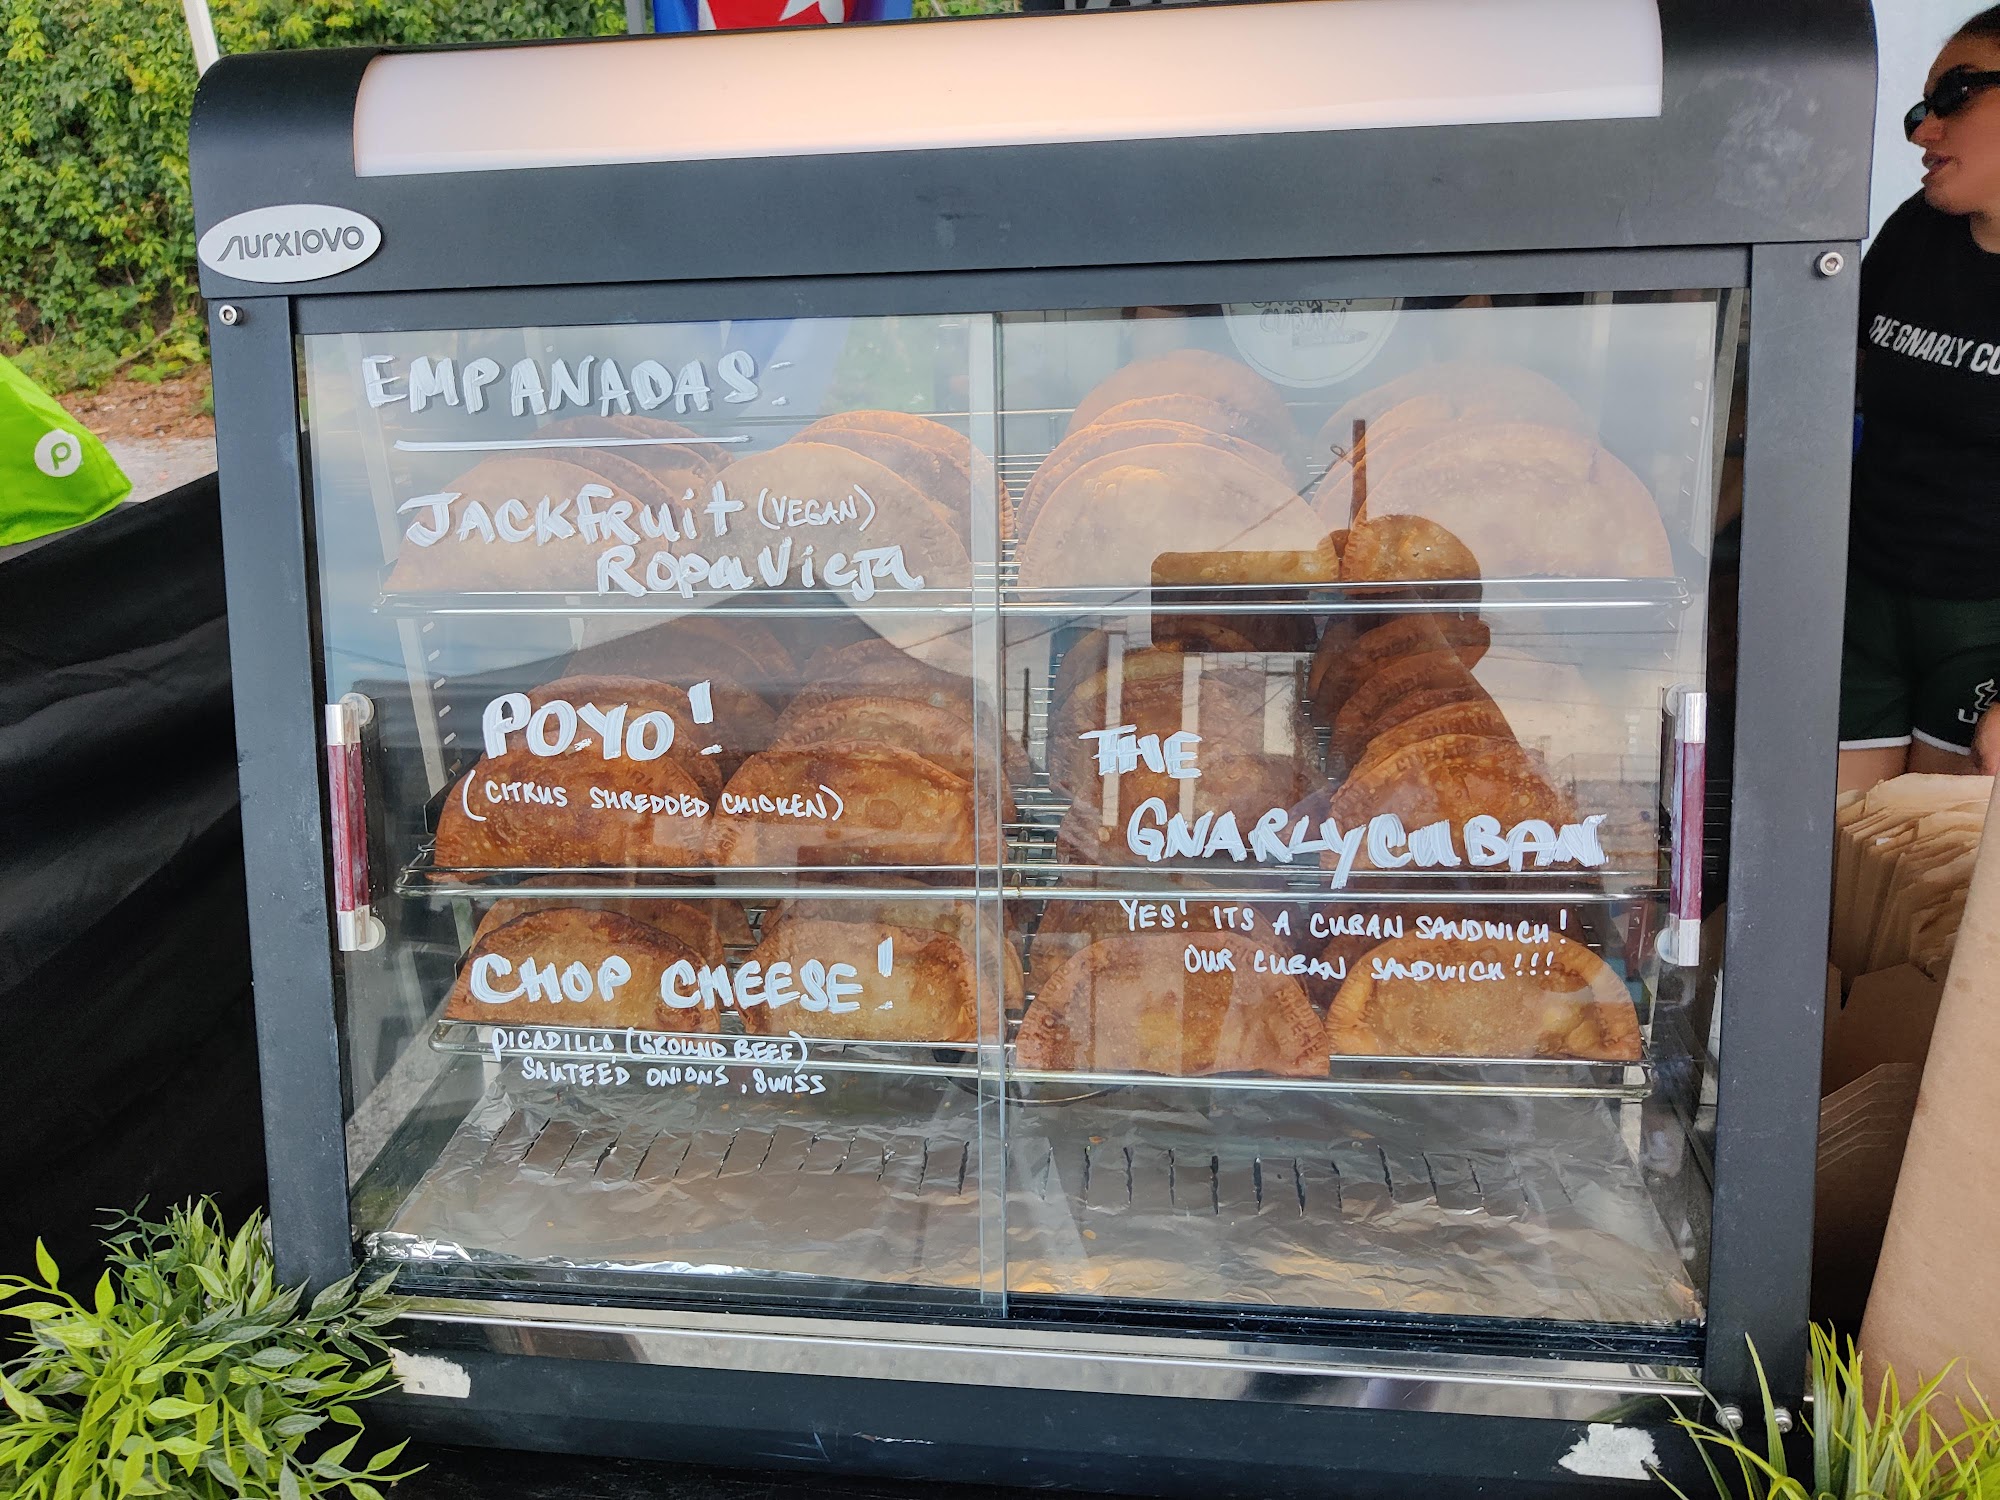 NURXIOVO
CUBAN
EMPANADAS:
JACKFRuit (VEGAN)
ROPA VIEJA
POYO!
(CITRUS SHREDDED CHICKEN)
CHOP CHEESE!
PICADILLO (GROUND BEEF)
SAUTEED ONIONS, SWISS
THE
GNARLY CUBAN
YES! ITS A CUBAN SANDWICH!
OUR CUBAN SANDWICH!!!
THE GNARLY CU
P
U